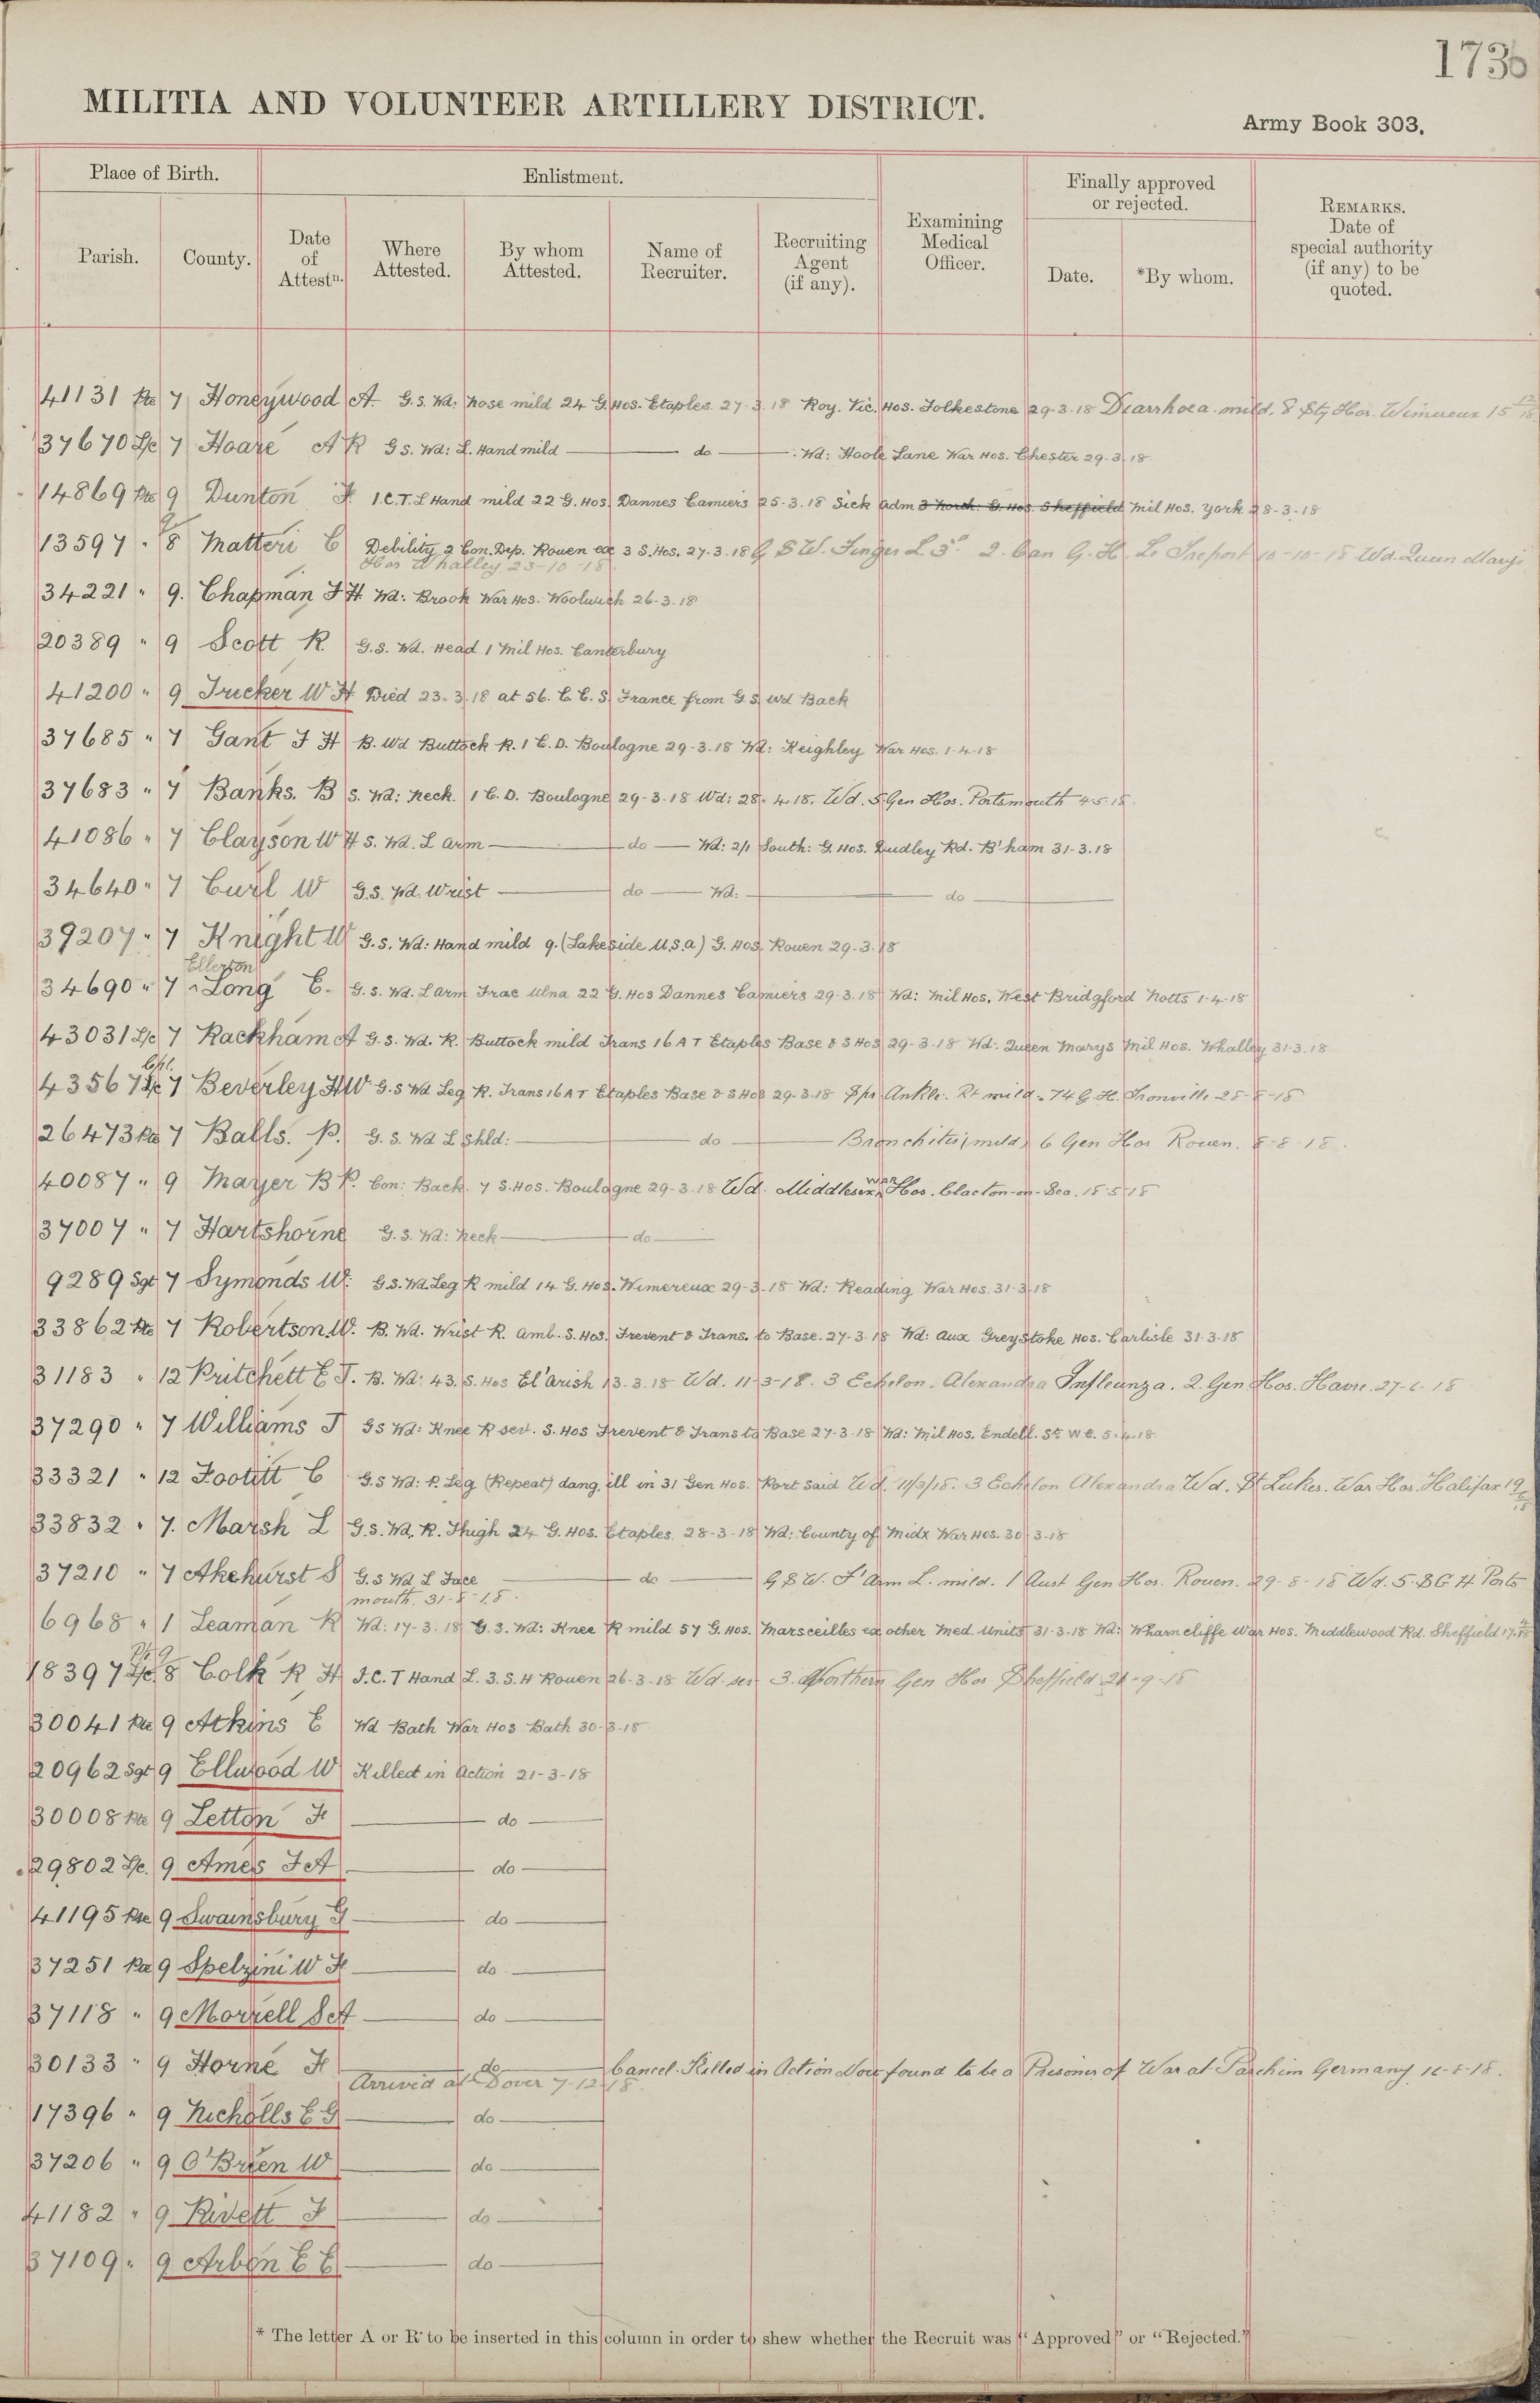 173b
MILITIA AND VOLUNTEER ARTILLERY DISTRICT.
Army Book 303.
Place of Birth.
Enlistment.
Finally approved
or rejected.
REMARKS.
Date of
special authority
(if any) to be
quoted.
Parish.
County.
Date
of
Attestn.
Where
Attested.
By whom
Attested.
Name of
Recruiter.
Recruiting
Agent
(if any).
Examining
Medical
Officer.
Date.
*By whom.
41131 Pte 7 Honeywood A. G.S. Wd: nose mild 24 G. Hos. Etaples 27.3.18 Roy. Vic. Hos. Folkestone 29-3-18 Diarrhoea mild. 8 Sty Hos. Wimereux 15 12/18
37670 L/c 7 Hoare A R G S. Wd: L. Hand mild — do — Wd: Hoole Lane War Hos. Chester 29.3.18
14869 Pte 9 Dunton F I.C.T. L Hand mild 22 G. Hos. Dannes Camiers 25-3-18 Sick Adm 3 North. G. Hos. Sheffield Mil Hos. York 28-3-18
13597 " 8 9 Matteri C Debility 2 Con. Dep. Rouen ex 3 S. Hos. 27-3-18 G S W. Finger L 3rd. 2. Can G. H. Le Treport 10-10-18 Wd. Queen Marys
Hos Whalley 23-10-18
34221 " 9. Chapman F H Wd: Brook War Hos. Woolwich 26.3.18
20389 " 9 Scott R. G.S. Wd. Head 1 Mil Hos. Canterbury
41200 " 9 Tricker W H Died 23.3.18 at 56. C. C. S. France from G.S. Wd Back
37685 " 7 Gant F H B. Wd Buttock R. 1 C. D. Boulogne 29-3-18 Wd: Keighley War Hos. 1-4-18
37683 " 7 Banks. B S. Wd: neck. 1 C. D. Boulogne 29-3-18 Wd: 28.4.18. Wd. 5 Gen Hos. Portsmouth 4-5-18.
41086 " 7 Clayson W H S. Wd. L arm — do — Wd: 2/1 South: G. Hos. Dudley Rd. B'ham 31-3-18
34640 " 7 Curl W G.S. Wd. Wrist — do — Wd: — do —
39207 " 7 Knight W G.S. Wd: Hand mild 9. (Lakeside U.S.A) G. Hos. Rouen 29-3-18
Ellerton
34690 " 7 ^ Long C. G.S. Wd. L arm Frac Ulna 22 G. Hos Dannes Camiers 29-3-18 Wd: Mil Hos. West Bridgford Notts 1-4-18
43031 L/c 7 Rackham A G.S. Wd. R. Buttock mild Trans 16 A T Etaples Base & S Hos 29-3-18 Wd: Queen Marys Mil Hos. Whalley 31-3-18
Cpl.
43567 L/c 7 Beverley H W G.S Wd Leg R. Trans 16 A T Etaples Base & S Hos 29-3-18 Spr Ankle. Rt mild. 74 G. H. Tronville 25-8-18
26473 Pte 7 Balls. P. G.S. Wd L Shld: — do — Bronchitis (mild) 6 Gen Hos Rouen. 8-8-18.
40087 " 9 Mayer B P. Con: Back 7 S. Hos. Boulogne 29-3-18 Wd. Middlesex War Hos. Clacton-on-Sea. 18-5-18
37007 " 7 Hartshorne G.S. Wd: neck — do —
9289 Sgt 7 Symonds W. G.S. Wd. Leg R mild 14 G. Hos. Wimereux 29-3-18 Wd: Reading War Hos. 31-3-18
33862 Pte 7 Robertson W. B. Wd. Wrist R. Amb. S. Hos. Frevent & Trans. to Base. 27-3-18 Wd: Aux Greystoke Hos. Carlisle 31-3-18
31183 " 12 Pritchett E T. B. Wd: 43. S. Hos El'Arish 13.3.18 Wd. 11-3-18. 3 Echelon. Alexandra Influenza. 2. Gen Hos. Havre. 27-6-18
37290 " 7 Williams J GS Wd: Knee R sev. S. Hos Frevent & Trans to Base 27-3-18 Wd: Mil Hos. Endell. St. W C. 5.4.18
33321 " 12 Footitt C G.S Wd: R. Leg (Repeat) dang. ill in 31 Gen Hos. Port Said Wd. 11/3/18. 3 Echelon Alexandra Wd. St Lukes. War Hos. Halifax 19 6/18
33832 " 7. Marsh L G.S. Wd. R. Thigh 24 G. Hos. Etaples 28-3-18 Wd: County of Midx War Hos. 30-3-18
37210 " 7 Akehurst S G.S Wd L Face — do — G S W. F'Arm L. mild. 1 Aust Gen Hos. Rouen. 29-8-18 Wd. 5. S G H Ports
mouth. 31-8-18.
6968 " 1 Leaman R Wd: 17-3-18 G.S. Wd: Knee R mild 57 G. Hos. Marseilles ex other Med. Units 31-3-18 Wd: Wharncliffe War Hos. Middlewood Rd. Sheffield 17 4/18
Pte 9
18397 L/c 8 Colk R H I.C.T Hand L. 3. S. H Rouen 26-3-18 Wd. sev 3. Northern Gen Hos Sheffield 21-9-18
30041 Pte 9 Atkins C Wd Bath War Hos Bath 30-3-18
20962 Sgt 9 Ellwood W Killed in Action 21-3-18
30008 Pte 9 Letton F — do —
29802 L/c. 9 Ames F A — do —
41195 Pte 9 Swainsbury G — do —
37251 Pte 9 Spelzini W F — do —
37118 " 9 Morrell S A — do —
30133 " 9 Horne F — do — Cancel. Killed in Action Now found to be a Prisoner of War at Parchim Germany 16-8-18.
Arrived at Dover 7-12-18.
17396 " 9 Nicholls E G — do —
37206 " 9 O'Brien W — do —
41182 " 9 Rivett F — do —
37109 " 9 Arbon E E — do —
* The letter A or R to be inserted in this column in order to shew whether the Recruit was "Approved" or "Rejected."